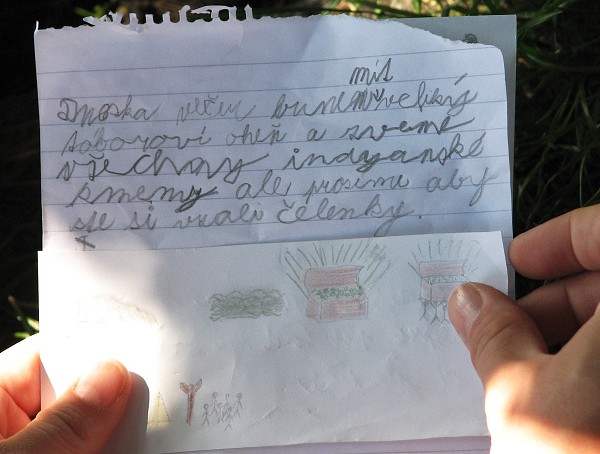 mít
Dneska večer budeme velký
táboroví oheň a zveme
všechny indyanské
kmeny ale prosíme aby
ste si vzali čelenky.